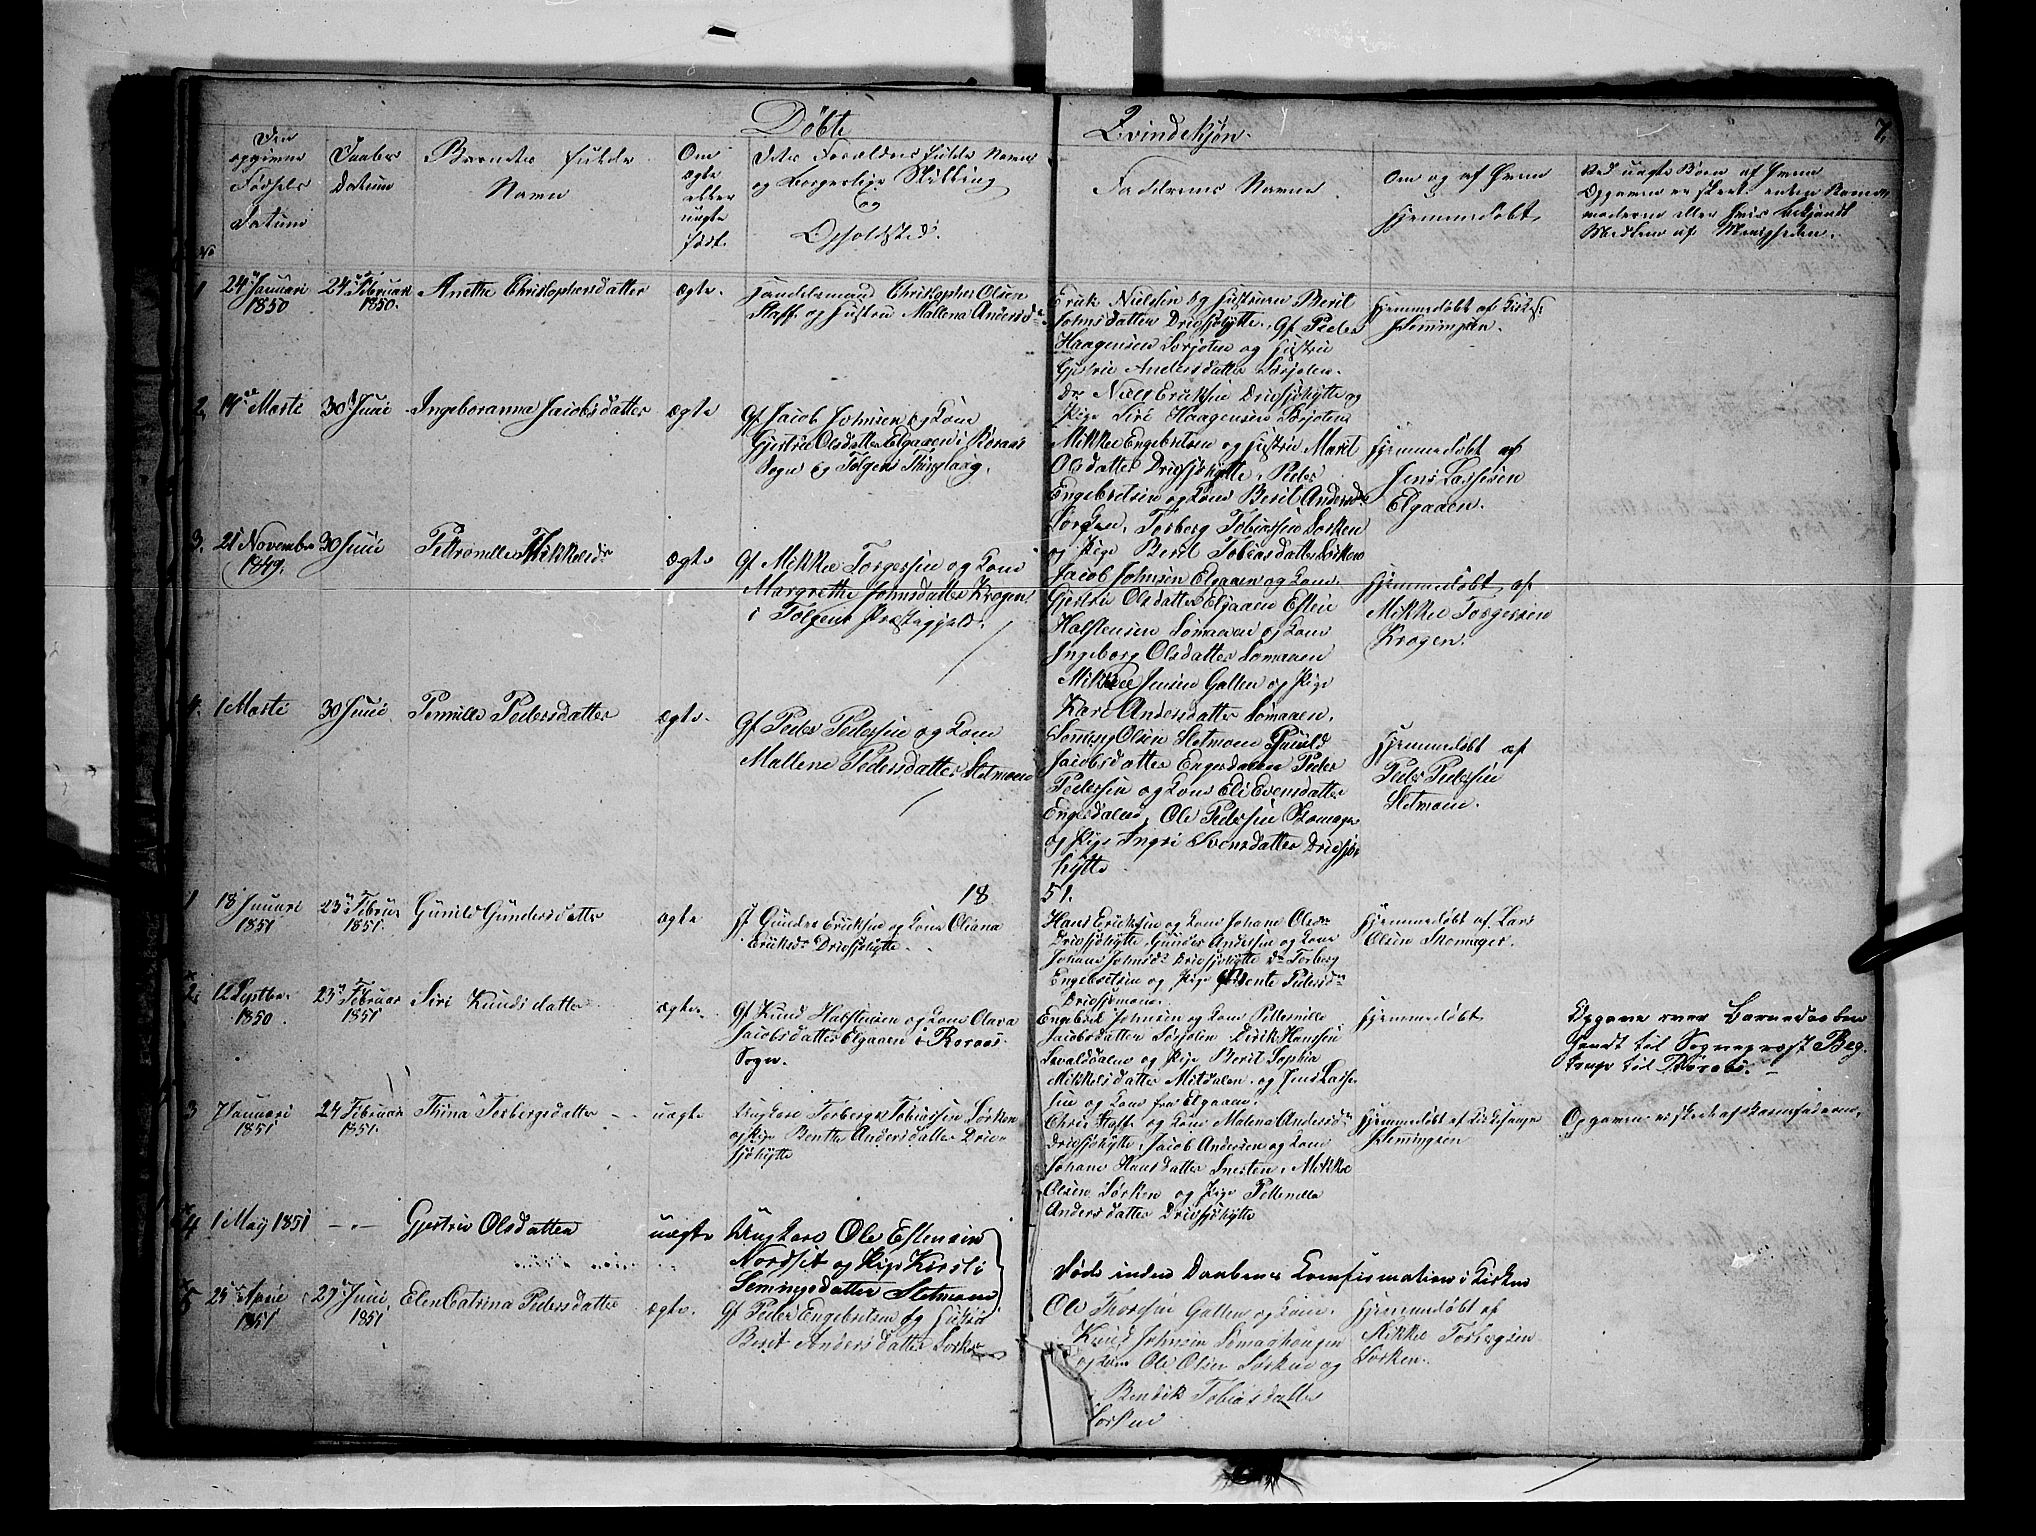 Døbte
Qvindekjøn.
7.
Den opgivne Fødsels Datum
Daabs Datum
Barnets fulde Navn
Om ægte eller uægte født.
Forældres fulde Navne og borgerlige Stilling og Opholdsted.
Faddernes Navne
Om og af Hvem hjemmedøbt
Ved uægte Børn af Hvem
Opgaven er skeet: enten Barne
moderen eller hvis bekjendt
Medlem af Menigheden.
1
24 Januari
1850
24 Februar
1850.
Anethe Christophersdatter
ægte.
Handelsmand Christopher Olsen
Staff og Hustru Mallena Andersd
Erik Nielsen og Hustruen Berit
Johnsdatter Drevsjøhytte. Gf Peder
Haagensen Sorjolen og Hustru
Gjertrue Andersdatter Sorjolen.
Niels Eriksen Drevsjøhytte og
Pige Siri Haagensen Sorjolen
hjemmedøbt af Kirkes:
Hemmingsen.
2.
14 Marti
30 Juni
Ingeboranna Jacobsdatter
ægte
Gf Jacob Johnsen og Kone
Gjertru Olsdatter Elgaaen i Røraas
Sogn og Tolgens Thinglaug.
Mikkel Engebretsen og Hustru Marit
Olsdatter Drevsjøhytte, Peder
Engebretsen og Kone Berit Andersd
Sorken, Torberg Tobiassen Sorken
og Pige Berit Tobiasdatter Sorken
hjemmedøbt af
Jens Lassesen
Elgaaen.
3.
21 Novembr
1849.
30 Juni
Petronille Mikkelsdr
ægte
Gf Mikkel Torgersen og Kone
Margrethe Johnsdatter Krogen
i Tolgens Præstegjeld.
Jacob Johnsen Elgaaen og Kone
Gjertru Olsdatter Elgaaen Esten
Halstensen Sømaaen og Kone
Ingeborg Olsdatter Sømaaen
Mikkel Jensen Galten og Pige
Kari Andersdatter Sømaaen.
hjemmedøbt af
Mikkel Torgersen
Krogen.
4.
1 Marti
30 Juni
Pernille Pedersdatter
ægte.
Gf Peder Pedersen og Kone
Mallene Pedersdatter Sletmoen
Semming Olsen Sletmoen Gunild
Jacobsdatter Engerdalen Peder
Pedersen og Kone Eli Evensdatter
Engerdalen, Ole Pedersen Skomager
og Pige Ingri Svensdatter Drevsjø
hytte
hjemmedøbt af
Peder Pedersen
Sletmoen.
18
51.
1
18 Januari
1851
23 Februar
1851.
Gunild Gundersdatter
ægte
Gf Gunder Eriksen og Kone Oliana
Eriksdr Drevsjøhytte.
Hans Eriksen og Kone Johane Olsdr
Drevsjøhytte, Gunder Andersen og Kone
Johane Johnsd Drevsjøhytte Torberg
Engebretsen og Pige Bente Pedersdr
Drevsjømoen.
hjemmedøbt af Lars
Olsen Skomager.
2.
12 Septbr.
1850
23 Februar
1851
Siri Knudsdatter
ægte.
Gf Knud Halstensen og Kone Olava
Jacobsdatter Elgaaen i Røraas
Sogn.
Engebret Johnsen og Kone Petternille
Jacobsdatter Sorjolen Eirik Hansen
og Pige Berit Sophia
Mikkelsdatter Mitdalen. og Jens Lasse
sen og Kone fra Elgaaen.
hjemmedøbt
Opgave over Barnedaaben
sendt til Sogneprost Beg-
trup til Røraas.
3
7 Januari
1851
24 Februar
1851.
Thina Torbergsdatter
uægte
Ungkarl Torberger Tobiassen Sorken
og Pige Benthe Andersdatter Drev-
sjøhytte
Chris Staff og Kone Malena Andersdr
Drevsjøhytte, Jacob Andersen og Kone
Johane Hansdatter Snerten, Mikkel
Olsen Sorken og Pige Pettenilla
Andersdatter Drevsjøhytte
hjemmedøbt af Kirkesanger
Hemingsen
Opgaven er skeet af Barnefaderen.
4
1 May 1851
- " -
Gjertrue Olsdatter
uægte
Ungkarl Ole Estensen
Nordset og Pige Kirsti
Semingsdatter Sletmoen
Døde inden Daabens Confirmation i Kirken
5
25 April
1851
29 Juni
1851
Elen Catrina Pedersdatter
ægte.
Gf Peder Engebretsen og Hustru
Berit Andersdatter Sorken
Ole Thoresen Galten og Kone.
Knud Johnsen Sømaghaugen
og Kone Ole Olsen Sorken og
Bendik Tobiasdatter
Sorken
hjemmedøbt af
Mikkel Torbergsen
Sorken.